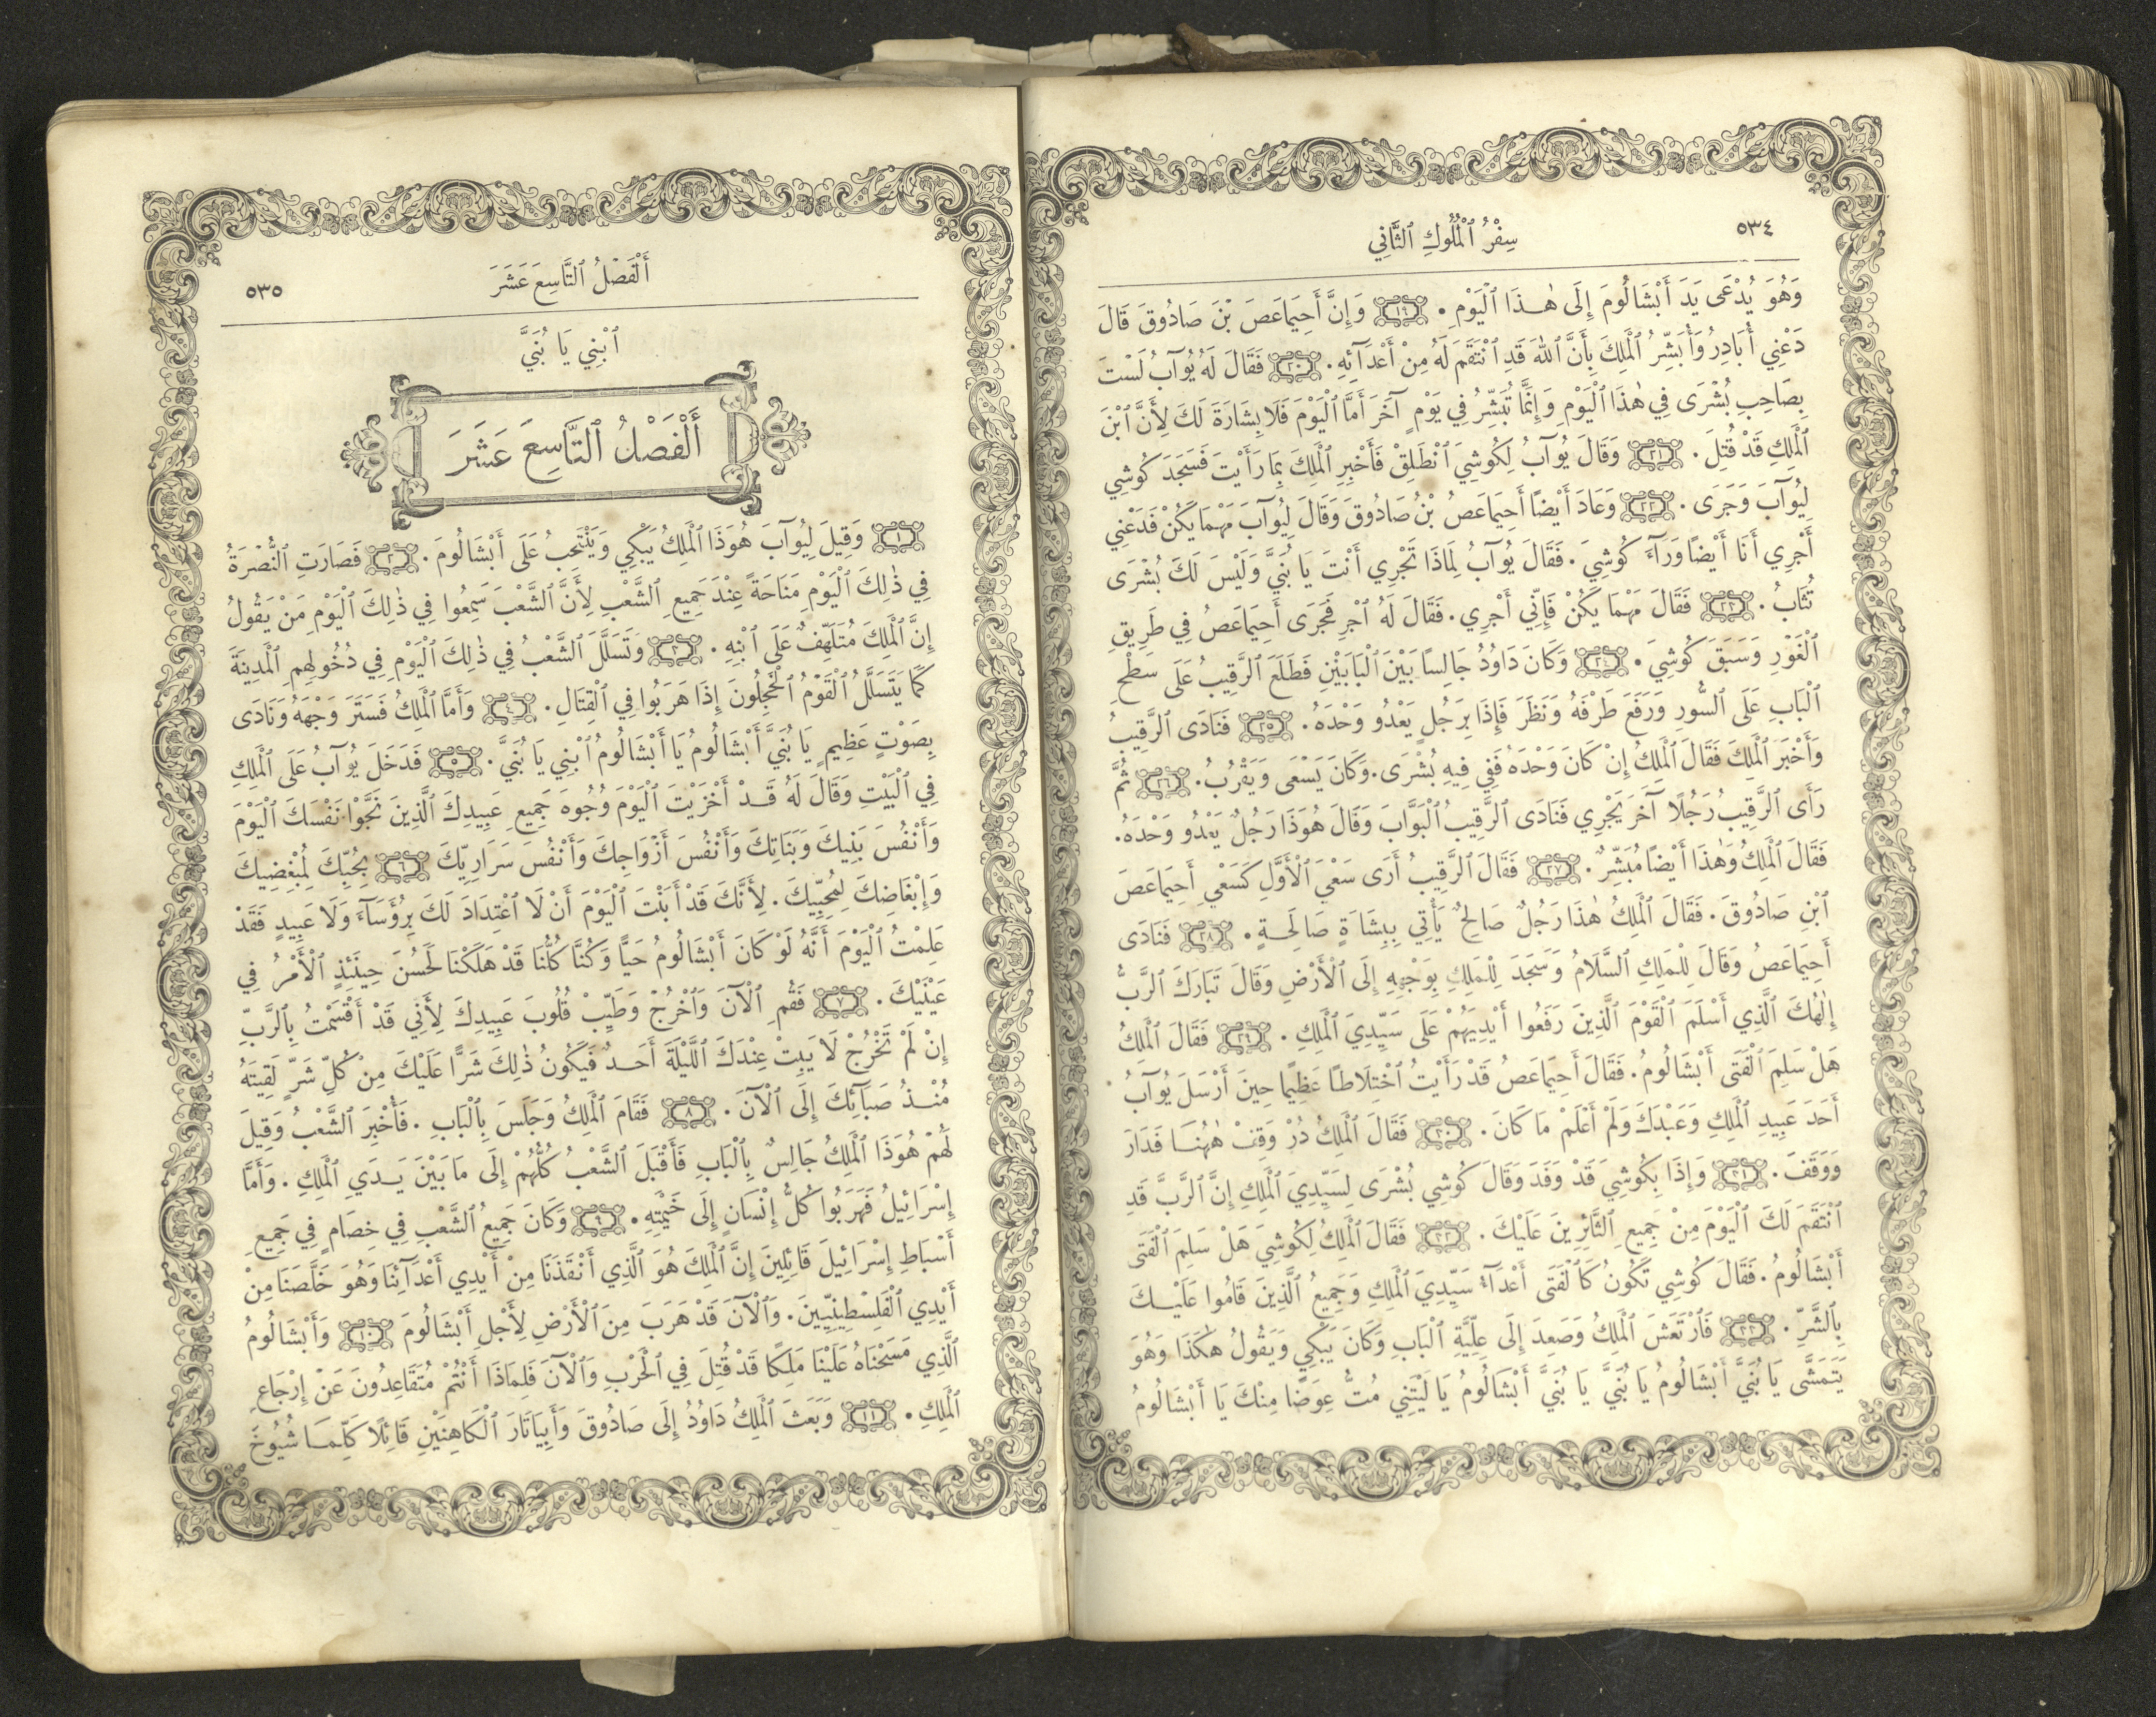 ٥٣٤
سِفْرُ ٱلْمُلُوكِ ٱلثَّانِي
وَهُوَ يُدْعَى يَدَ أَبْشَالُومَ إِلَى هٰذَا ٱلْيَوْمِ. ﴿١٩﴾ وَإِنَّ أَحِيمَاعَصَ بْنَ صَادُوقَ قَالَ
دَعْنِي أُبَادِرُ وَأُبَشِّرُ ٱلْمَلِكَ بِأَنَّ ٱللهَ قَدِ ٱنْتَقَمَ لَهُ مِنْ أَعْدَآئِهِ. ﴿٢٠﴾ فَقَالَ لَهُ يُوآبُ لَسْتَ
بِصَاحِبِ بُشْرَى فِي هٰذَا ٱلْيَوْمِ وَإِنَّمَا تُبَشِّرُ فِي يَوْمٍ آخَرَ أَمَّا ٱلْيَوْمَ فَلَا بِشَارَةَ لَكَ لِأَنَّ ٱبْنَ
ٱلْمَلِكِ قَدْ قُتِلَ. ﴿٢١﴾ وَقَالَ يُوآبُ لِكُوشِيَ ٱنْطَلِقْ فَأَخْبِرِ ٱلْمَلِكَ بِمَا رَأَيْتَ فَسَجَدَ كُوشِي
لِيُوآبَ وَجَرَى. ﴿٢٢﴾ وَعَادَ أَيْضًا أَحِيمَاعَصُ بْنُ صَادُوقَ وَقَالَ لِيُوآبَ مَهْمَا يَكُنْ فَدَعْنِي
أَجْرِي أَنَا أَيْضًا وَرَآءَ كُوشِيَ. فَقَالَ يُوآبُ لِمَاذَا تَجْرِي أَنْتَ يَا بُنَيَّ وَلَيْسَ لَكَ بُشْرَى
تُثَابُ. ﴿٢٣﴾ فَقَالَ مَهْمَا يَكُنْ فَإِنِّي أَجْرِي. فَقَالَ لَهُ ٱجْرِ فَجَرَى أَحِيمَاعَصُ فِي طَرِيقِ
ٱلْغَوْرِ وَسَبَقَ كُوشِيَ. ﴿٢٤﴾ وَكَانَ دَاوُدُ جَالِسًا بَيْنَ ٱلْبَابَيْنِ فَطَلَعَ ٱلرَّقِيبُ عَلَى سَطْحِ
ٱلْبَابِ عَلَى ٱلسُّورِ وَرَفَعَ طَرْفَهُ وَنَظَرَ فَإِذَا بِرَجُلٍ يَعْدُو وَحْدَهُ. ﴿٢٥﴾ فَنَادَى ٱلرَّقِيبُ
وَأَخْبَرَ ٱلْمَلِكَ فَقَالَ ٱلْمَلِكُ إِنْ كَانَ وَحْدَهُ فَفِي فِيهِ بُشْرَى. وَكَانَ يَسْعَى وَيَقْرُبُ. ﴿٢٦﴾ ثُمَّ
رَأَى ٱلرَّقِيبُ رَجُلًا آخَرَ يَجْرِي فَنَادَى ٱلرَّقِيبُ ٱلْبَوَّابَ وَقَالَ هُوَذَا رَجُلٌ يَعْدُو وَحْدَهُ.
فَقَالَ ٱلْمَلِكُ وَهٰذَا أَيْضًا مُبَشِّرٌ. ﴿٢٧﴾ فَقَالَ ٱلرَّقِيبُ أَرَى سَعْيَ ٱلْأَوَّلِ كَسَعْيِ أَحِيمَاعَصَ
ٱبْنِ صَادُوقَ. فَقَالَ ٱلْمَلِكُ هٰذَا رَجُلٌ صَالِحٌ يَأْتِي بِبِشَارَةٍ صَالِحَةٍ. ﴿٢٨﴾ فَنَادَى
أَحِيمَاعَصُ وَقَالَ لِلْمَلِكِ ٱلسَّلَامُ وَسَجَدَ لِلْمَلِكِ بِوَجْهِهِ إِلَى ٱلْأَرْضِ وَقَالَ تَبَارَكَ ٱلرَّبُّ
إِلٰهُكَ ٱلَّذِي أَسْلَمَ ٱلْقَوْمَ ٱلَّذِينَ رَفَعُوا أَيْدِيَهُمْ عَلَى سَيِّدِيَ ٱلْمَلِكِ. ﴿٢٩﴾ فَقَالَ ٱلْمَلِكُ
هَلْ سَلِمَ ٱلْفَتَى أَبْشَالُومُ. فَقَالَ أَحِيمَاعَصُ قَدْ رَأَيْتُ ٱخْتِلَاطًا عَظِيمًا حِينَ أَرْسَلَ يُوآبُ
أَحَدَ عَبِيدِ ٱلْمَلِكِ وَعَبْدَكَ وَلَمْ أَعْلَمْ مَا كَانَ. ﴿٣٠﴾ فَقَالَ ٱلْمَلِكُ دُرْ وَقِفْ هٰهُنَا فَدَارَ
وَوَقَفَ. ﴿٣١﴾ وَإِذَا بِكُوشِيَ قَدْ وَفَدَ وَقَالَ كُوشِي بُشْرَى لِسَيِّدِيَ ٱلْمَلِكِ إِنَّ ٱلرَّبَّ قَدِ
ٱنْتَقَمَ لَكَ ٱلْيَوْمَ مِنْ جَمِيعِ ٱلثَّائِرِينَ عَلَيْكَ. ﴿٣٢﴾ فَقَالَ ٱلْمَلِكُ لِكُوشِيَ هَلْ سَلِمَ ٱلْفَتَى
أَبْشَالُومُ. فَقَالَ كُوشِي تَكُونُ كَٱلْفَتَى أَعْدَآءُ سَيِّدِيَ ٱلْمَلِكِ وَجَمِيعُ ٱلَّذِينَ قَامُوا عَلَيْكَ
بِٱلشَّرِّ. ﴿٣٣﴾ فَٱرْتَعَشَ ٱلْمَلِكُ وَصَعِدَ إِلَى عِلِّيَّةِ ٱلْبَابِ وَكَانَ يَبْكِي وَيَقُولُ هٰكَذَا وَهُوَ
يَتَمَشَّى يَا بُنَيَّ أَبْشَالُومُ يَا بُنَيَّ يَا بُنَيَّ أَبْشَالُومُ يَا لَيْتَنِي مُتُّ عِوَضًا مِنْكَ يَا أَبْشَالُومُ
أَلْفَصْلُ ٱلتَّاسِعَ عَشَرَ
٥٣٥
ٱبْنِي يَا بُنَيَّ
أَلْفَصْلُ ٱلتَّاسِعَ عَشَرَ
﴿١﴾ وَقِيلَ لِيُوآبَ هُوَذَا ٱلْمَلِكُ يَبْكِي وَيَنْتَحِبُ عَلَى أَبْشَالُومَ. ﴿٢﴾ فَصَارَتِ ٱلنُّصْرَةُ
فِي ذٰلِكَ ٱلْيَوْمِ مَنَاحَةً عِنْدَ جَمِيعِ ٱلشَّعْبِ لِأَنَّ ٱلشَّعْبَ سَمِعُوا فِي ذٰلِكَ ٱلْيَوْمِ مَنْ يَقُولُ
إِنَّ ٱلْمَلِكَ مُتَلَهِّفٌ عَلَى ٱبْنِهِ. ﴿٣﴾ وَتَسَلَّلَ ٱلشَّعْبُ فِي ذٰلِكَ ٱلْيَوْمِ فِي دُخُولِهِمِ ٱلْمَدِينَةَ
كَمَا يَتَسَلَّلُ ٱلْقَوْمُ ٱلْخَجِلُونَ إِذَا هَرَبُوا فِي ٱلْقِتَالِ. ﴿٤﴾ وَأَمَّا ٱلْمَلِكُ فَسَتَرَ وَجْهَهُ وَنَادَى
بِصَوْتٍ عَظِيمٍ يَا بُنَيَّ أَبْشَالُومُ يَا أَبْشَالُومُ ٱبْنِي يَا بُنَيَّ. ﴿٥﴾ فَدَخَلَ يُوآبُ عَلَى ٱلْمَلِكِ
فِي ٱلْبَيْتِ وَقَالَ لَهُ قَدْ أَخْزَيْتَ ٱلْيَوْمَ وُجُوهَ جَمِيعِ عَبِيدِكَ ٱلَّذِينَ نَجَّوْا نَفْسَكَ ٱلْيَوْمَ
وَأَنْفُسَ بَنِيكَ وَبَنَاتِكَ وَأَنْفُسَ أَزْوَاجِكَ وَأَنْفُسَ سَرَارِيِّكَ ﴿٦﴾ بِحُبِّكَ لِمُبْغِضِيكَ
وَإِبْغَاضِكَ لِمُحِبِّيكَ. لِأَنَّكَ قَدْ أَبَنْتَ ٱلْيَوْمَ أَنْ لَا ٱعْتِدَادَ لَكَ بِرُؤَسَآءَ وَلَا عَبِيدٍ فَقَدْ
عَلِمْتُ ٱلْيَوْمَ أَنَّهُ لَوْ كَانَ أَبْشَالُومُ حَيًّا وَكُنَّا كُلُّنَا قَدْ هَلَكْنَا لَحَسُنَ حِينَئِذٍ ٱلْأَمْرُ فِي
عَيْنَيْكَ. ﴿٧﴾ فَقُمِ ٱلْآنَ وَٱخْرُجْ وَطَيِّبْ قُلُوبَ عَبِيدِكَ لِأَنِّي قَدْ أَقْسَمْتُ بِٱلرَّبِّ
إِنْ لَمْ تَخْرُجْ لَا يَبِتْ عِنْدَكَ ٱللَّيْلَةَ أَحَدٌ فَيَكُونُ ذٰلِكَ شَرًّا عَلَيْكَ مِنْ كُلِّ شَرٍّ لَقِيتَهُ
مُنْذُ صَبَآئِكَ إِلَى ٱلْآنَ. ﴿٨﴾ فَقَامَ ٱلْمَلِكُ وَجَلَسَ بِٱلْبَابِ. فَأُخْبِرَ ٱلشَّعْبُ وَقِيلَ
لَهُمْ هُوَذَا ٱلْمَلِكُ جَالِسٌ بِٱلْبَابِ فَأَقْبَلَ ٱلشَّعْبُ كُلُّهُمْ إِلَى مَا بَيْنَ يَدَيِ ٱلْمَلِكِ. وَأَمَّا
إِسْرَائِيلُ فَهَرَبُوا كُلُّ إِنْسَانٍ إِلَى خَيْمَتِهِ. ﴿٩﴾ وَكَانَ جَمِيعُ ٱلشَّعْبِ فِي خِصَامٍ فِي جَمِيعِ
أَسْبَاطِ إِسْرَائِيلَ قَائِلِينَ إِنَّ ٱلْمَلِكَ هُوَ ٱلَّذِي أَنْقَذَنَا مِنْ أَيْدِي أَعْدَآئِنَا وَهُوَ خَلَّصَنَا مِنْ
أَيْدِي ٱلْفَلِسْطِينِيِّينَ. وَٱلْآنَ قَدْ هَرَبَ مِنَ ٱلْأَرْضِ لِأَجْلِ أَبْشَالُومَ ﴿١٠﴾ وَأَبْشَالُومُ
ٱلَّذِي مَسَحْنَاهُ عَلَيْنَا مَلِكًا قَدْ قُتِلَ فِي ٱلْحَرْبِ وَٱلْآنَ فَلِمَاذَا أَنْتُمْ مُتَقَاعِدُونَ عَنْ إِرْجَاعِ
ٱلْمَلِكِ. ﴿١١﴾ وَبَعَثَ ٱلْمَلِكُ دَاوُدُ إِلَى صَادُوقَ وَأَبِيَاتَارَ ٱلْكَاهِنَيْنِ قَائِلًا كَلِّمَا شُيُوخَ